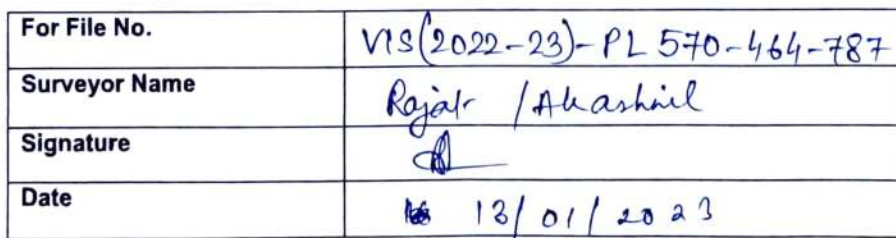 For File No. VIS(2022-23)-PL 570-464-787
Surveyor Name Rajat /
Signature
Date 13/01/2023